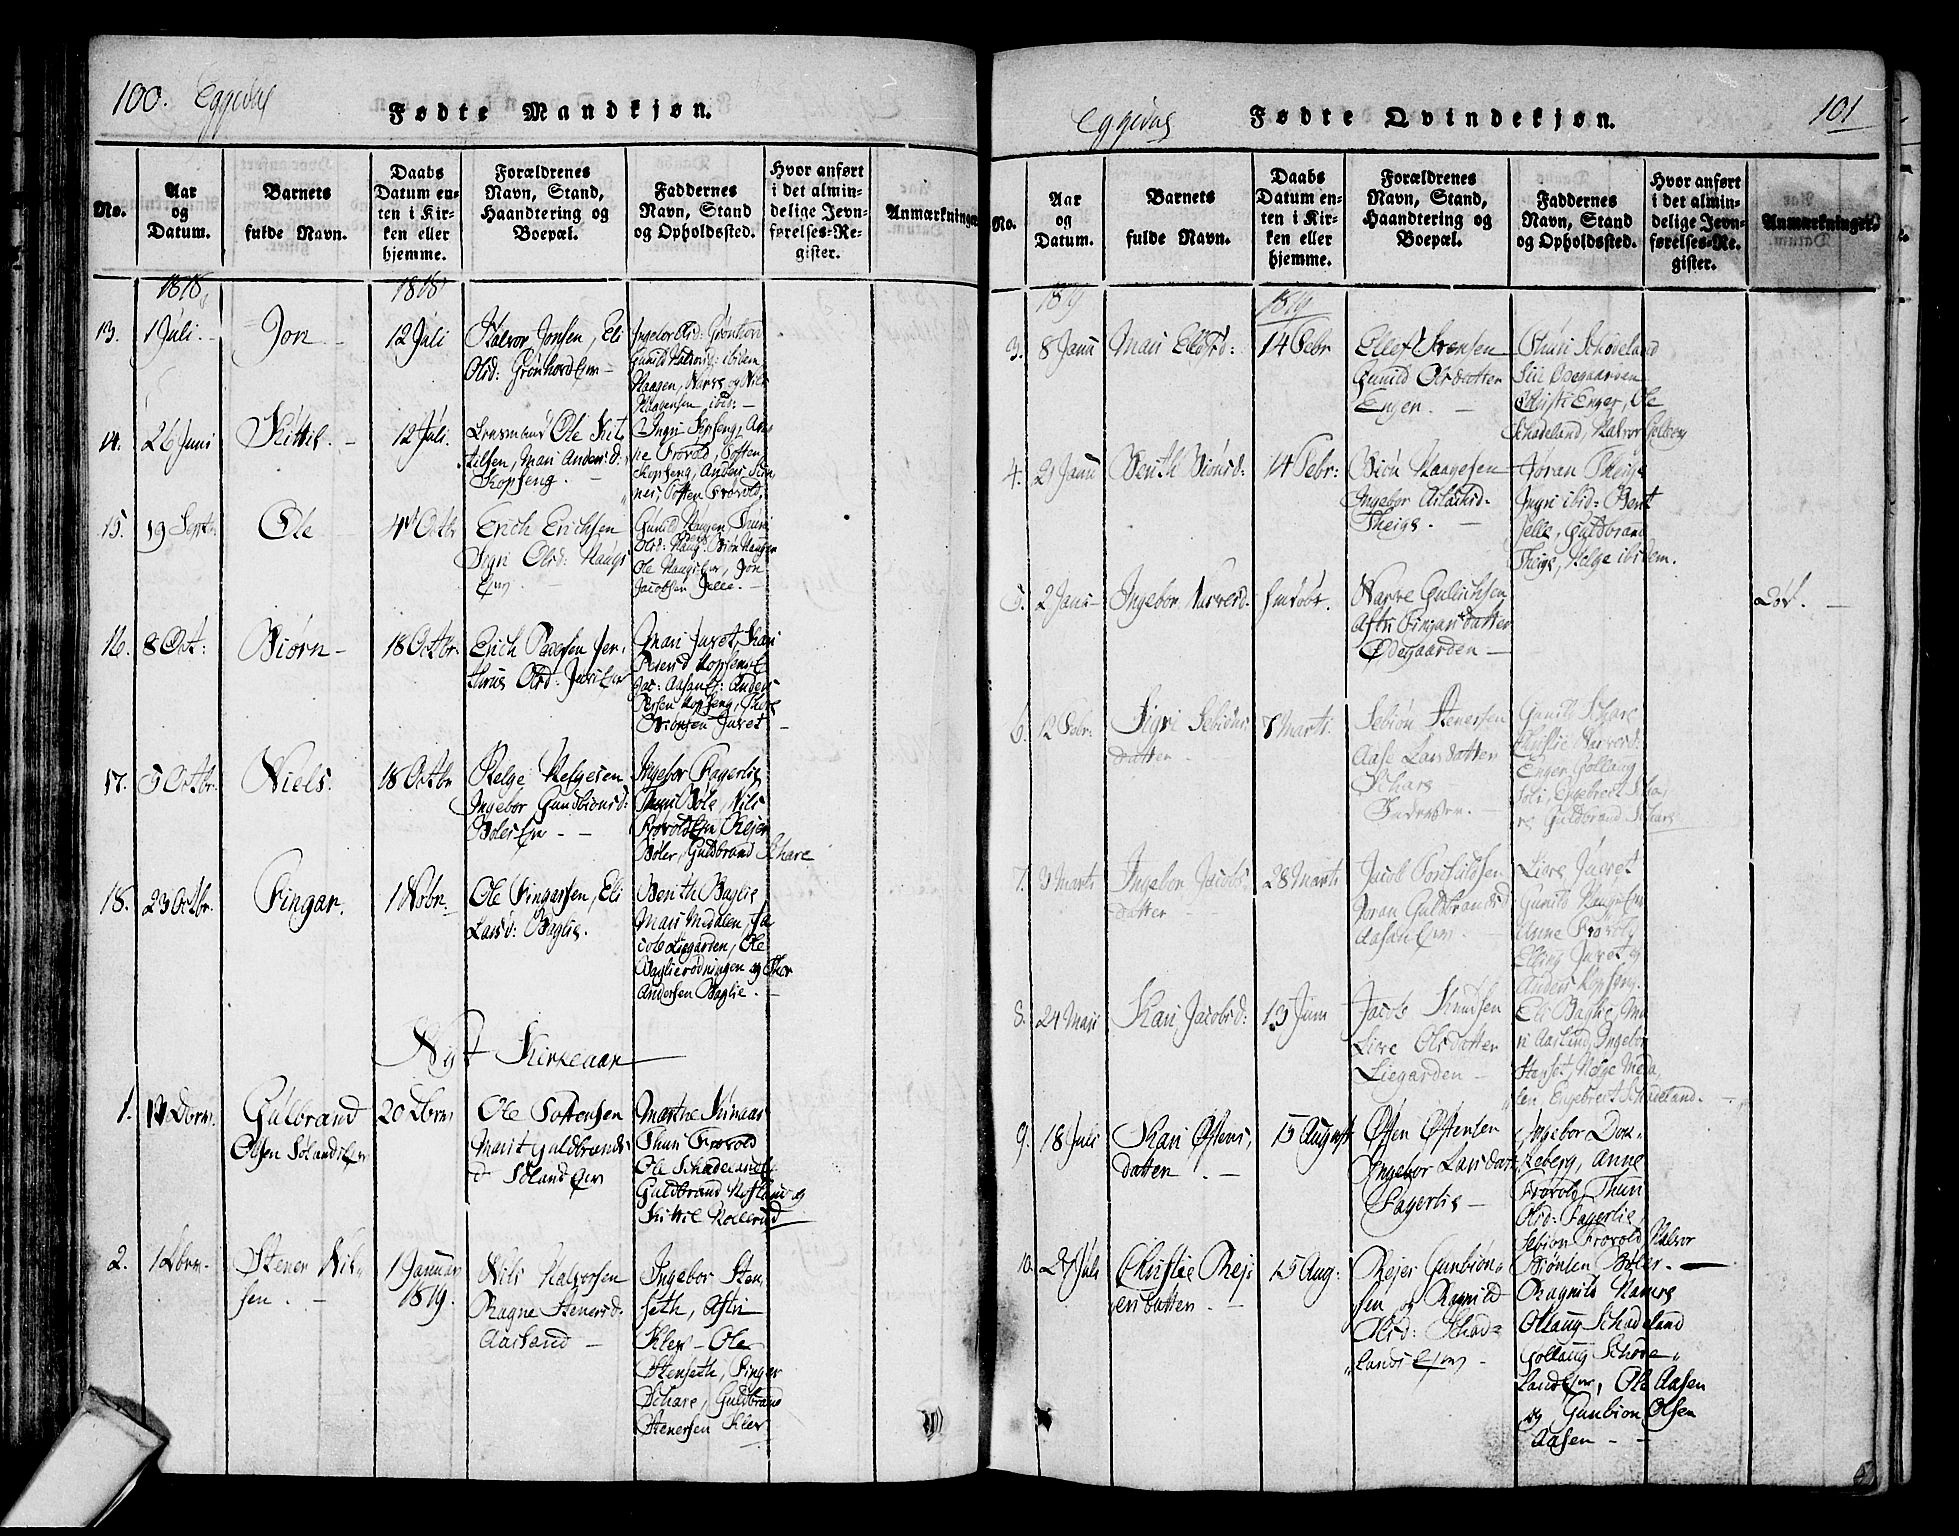 100. Eggedal
Fødte Mandkjøn.
No.
Aar
og
Datum.
Barnets
fulde Navn.
Daabs
Datum en-
ten i Kir-
ken eller
hjemme.
Forældrenes
Navn, Stand,
Haandtering og
Boepæl.
Faddernes
Navn, Stand
og Opholdssted.
Hvor anført
i det almin-
delige Jevn-
førelses-Re-
gister.
Anmærkninger
1818
1818
13.
1 Juli
Jon
12 Juli
Halvor Jonsen, Eli
Olsd: Grønhovd Eier
Ingebor Olsd: Grønhovd
Gunild Halvorsd: ibidem
Haagen, Narve og Nils
Haagensen ibid:
14.
26 Juni
Kittil.
12 Juli.
Lensmand Ole Kit
tilsen, Mari Andersd:
Kopseng.
Ingri Kopseng, An
ne Frøvold, Tosten
Kopseng, Anders
Tosten Frøvold,
15.
19 Septr.
Ole
4 Octbr
Erich Erichsen
Sigri Olsd: Haugs
Eier
Gunild Haugen, Thuri
Olsd: Haug Biøn Haugen
Ole Haugs Eier, Jon
Jacobsen Jelle.
16.
8 Oct:
Biørn
18 Octbr.
Erich Pedersen Jen
Olsd: Juvs Eier
Mari Juvet, Kari
Kopseng
Aasan E: Anders
Kopseng, Thore
Biønsen Juvet
17.
5 Octbr.
Niels.
18 Octbr
Helge Helgesen
Ingebor Gundbiønsd:
Bøles Eier
Ingebor Fagerlie
Bøle, Nils
Frøvolds Eier Rejer
Bøler, Guldbrand Skare
18.
23 Octbr.
Fingar.
1 Nobr.
Ole Fingarsen, Eli
Larsd: Baglie.
Benth Baglie
Mari Medalen, Ja
cob Liegarden, Ole
Baglierødningen og Thor
Andersen Baglie.
Nyt Kirkeaar
1.
12 Dbrm.
Gulbrand
Olsen Solands Eier
20 Dbrm
Ole Tostensen
Marit Guldbrands
d Soland Eier
Marthe
Thuri Frøvold
Ole Skadeland
Guldbrand Næsland og
Kittil Hollerud
2.
1 Dbrm.
Stener Nil
sen.
1 Januar
1819.
Nils Halvorsen
Ragne Stenersd:
Aasland
Ingebor Sten
seth, Astri
Klev Ole
Stenseth, Finger
Skare, Guldbrand
Stenersen Klev
Eggedal
Fødte Qvindekjøn.
101
No.
Aar
og
Datum.
Barnets
fulde Navn.
Daabs
Datum en-
ten i Kir-
ken eller
hjemme.
Forældrenes
Navn, Stand,
Haandtering og
Boepæl.
Faddernes
Navn, Stand
og Opholdssted.
Hvor anført
i det almin-
delige Jevn-
førelses-Re-
gister.
Anmærkninger
1819
1819
3.
8 Janu
Mari Ellefsd:
14 Febr
Ellef Svensen
Gunild Olsdatter
Engen.
Thuri Skadeland
Siri Ødegaarden
Christi Enger, Ole
Skadeland, Halvor Colberg
4.
21 Janu
Benth Biønsd:
14 Febr:
Biøn Haagesen
Ingebor Aslachsd.
Theige.
Jøran Theige
Ingri ibid: Bent
Jelle, Guldbrand
Theige, Helge ibidem.
5.
2 Janu
Ingebor Narvesd.
hmdøbt.
Narve Gullichsen
Astri Fingarsdatter
Ødegaarden
Død.
6.
12 Febr:
Sigri Sebiøns
datter
7 Marti.
Sebiøn Stenersen
Aase Larsdatter
Skare
Inderster.
Gunild Skare
Christie Narvesd:
Enger Gollaug
Soli, Engebret Ska
re Guldbrand Skare
7.
3 Marti
Ingebor Jacobs
datter
28 Marti
Jacob Torkildsen
Jøran Guldbrandsd
Aasan Eier
Live Juvet
Gunild Haugs Eier
Anne Frøvold,
Elling Juvet og
Anders Kopseng.
8.
24 Mari
Kari Jacobsd:
13 Juni
Jacob Knudsen
Live Olsdatter
Liegarden
Eli Baglie, Ma
ri Aaslund, Ingebor
Stenset, Helge Meda
len Engebret Skadeland.
9.
18 Juli
Kari Østens
datter.
15 August
Østen Østensen
Ingebor Larsdatt.
Fagerlie
Ingebor Dok
keberg, Anne
Frøvold, Thuri
Olsd: Fagerlie,
Sebiøn Frøvold Halvor
Biønsen Bøler.
10.
27 Juli
Christie Rejs
ersdatter.
15 Aug:
Rejer Gunbiøn
sen og Ragnild
Olsd: Skad
lands Eier
Ragnild Haavre
Ollaug Skadeland
Gollaug Skade
land Eier, Ole Aasen
og Gunbion Olsen
Aasen